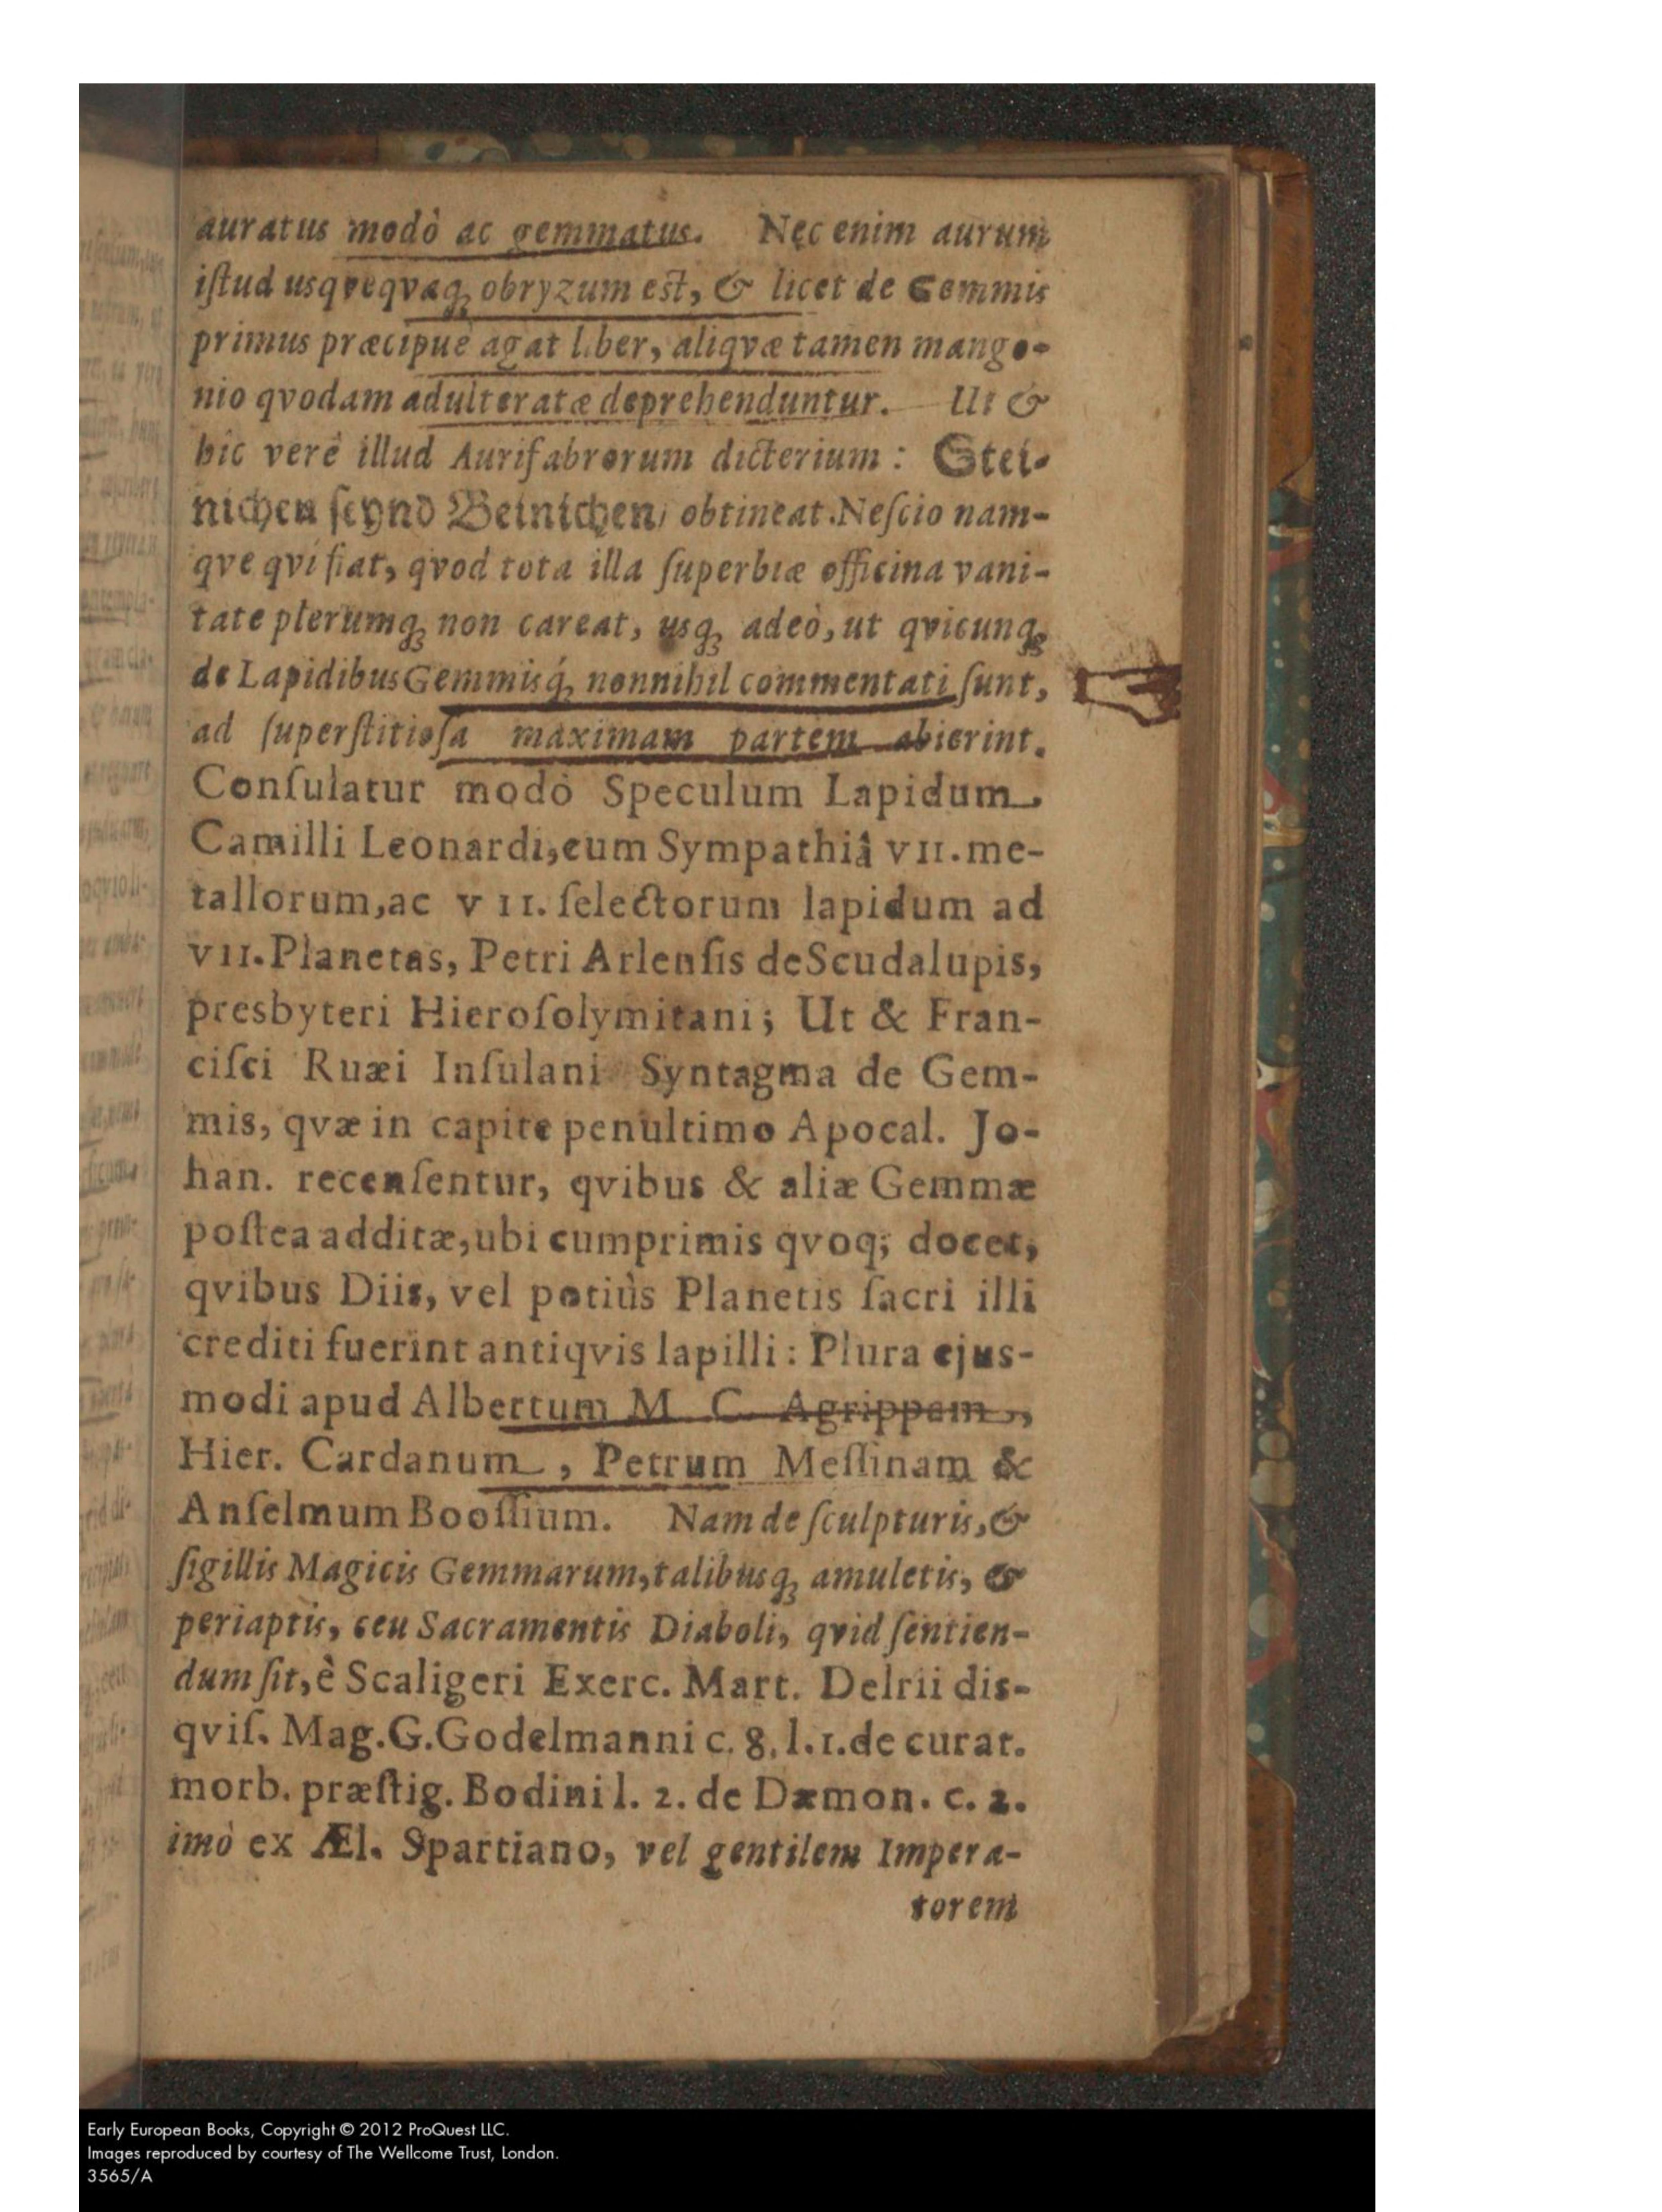 auratus modò ac gemmatus. Nec enim aurum
iſtud usqveqvaq; obryzum est, & licet de Gemmis
primus præcipuè agat liber, aliqvæ tamen mango-
nio qvodam adulteratæ deprehenduntur. Ut &
hic verè illud Aurifabrorum dicterium: Stei-
nichen ſeynd Beinichen/ obtineat. Neſcio nam-
qve qvi fiat, qvod tota illa ſuperbiæ officina vani-
tate plerumq; non careat, usq; adeò, ut qvicunq;
de Lapidibus Gemmisq́; nonnihil commentati ſunt,
ad ſuperſtitioſa maximam partem abierint.
Conſulatur modò Speculum Lapidum,
Camilli Leonardi, cum Sympathiâ VII. me-
tallorum, ac VII. ſelectorum lapidum ad
VII. Planetas, Petri Arlenſis de Scudalupis,
presbyteri Hieroſolymitani; Ut & Fran-
ciſci Ruæi Inſulani Syntagma de Gem-
mis, qvæ in capite penultimo Apocal. Jo-
han. recenſentur, qvibus & aliæ Gemmæ
poſtea additæ, ubi cumprimis qvoq; docet,
qvibus Diis, vel potiùs Planetis ſacri illi
crediti fuerint antiqvis lapilli: Plura ejus-
modi apud Albertum M. C. Agrippam,
Hier. Cardanum, Petrum Meſſinam &
Anſelmum Booſſium. Nam de ſculpturis, &
ſigillis Magicis Gemmarum, talibusq; amuletis, &
periaptis, ceu Sacramentis Diaboli, qvid ſentien-
dum ſit, è Scaligeri Exerc. Mart. Delrii dis-
qviſ. Mag. G. Godelmanni c. 8. l. 1. de curat.
morb. præſtig. Bodini l. 2. de Dæmon. c. 2.
imò ex Æl. Spartiano, vel gentilem Impera-
torem
Early European Books, Copyright © 2012 ProQuest LLC.
Images reproduced by courtesy of The Wellcome Trust, London.
3565/A